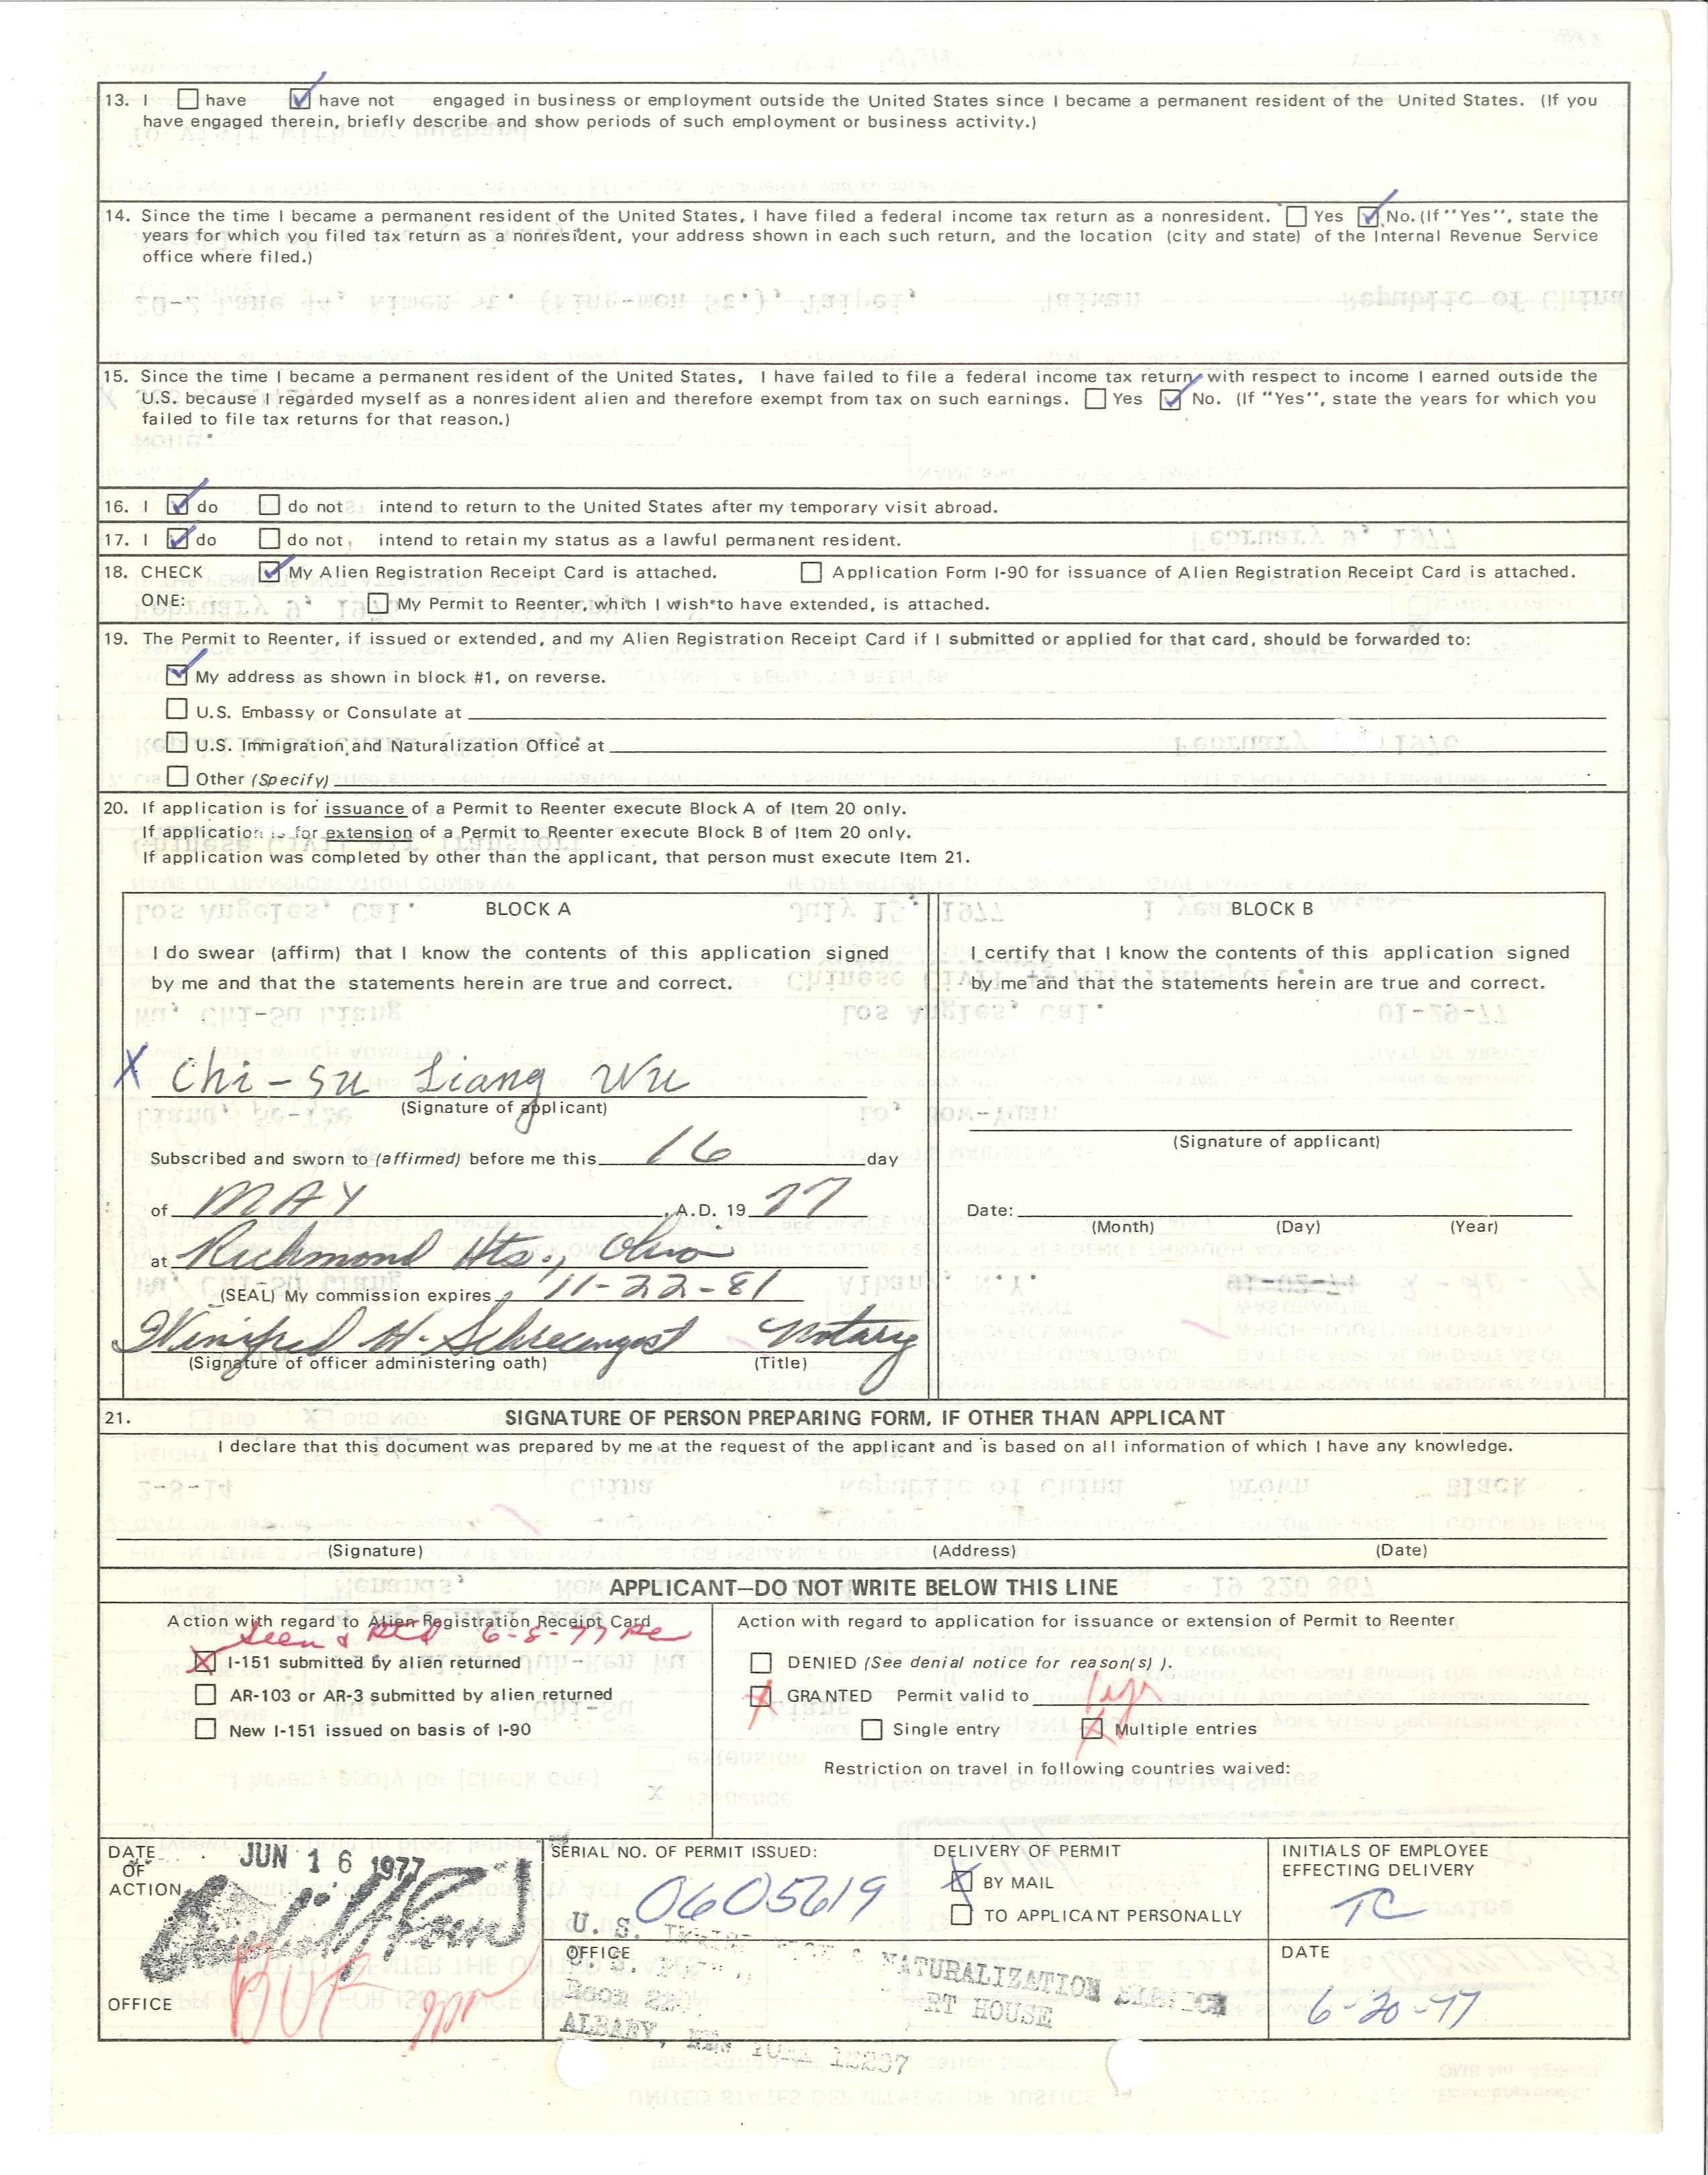 13. I have have not engaged in business or employment outside the United States since I became a permanent resident of the United States. (If you
have engaged therein, briefly describe and show periods of such employment or business activity.)
14. Since the time I became a permanent resident of the United States, I have filed a federal income tax return as a nonresident. Yes No. (If "Yes", state the
years for which you filed tax return as a nonresident, your address shown in each such return, and the location (city and state) of the Internal Revenue Service
office where filed.)
15. Since the time I became a permanent resident of the United States, I have failed to file a federal income tax return with respect to income I earned outside the
U.S. because I regarded myself as a nonresident alien and therefore exempt from tax on such earnings. Yes No. (If "Yes", state the years for which you
failed to file tax returns for that reason.)
16. I do do not intend to return to the United States after my temporary visit abroad.
17. I do do not intend to retain my status as a lawful permanent resident.
18. CHECK My Alien Registration Receipt Card is attached. Application Form I-90 for issuance of Alien Registration Receipt Card is attached.
ONE: My Permit to Reenter, which I wish to have extended, is attached.
19. The Permit to Reenter, if issued or extended, and my Alien Registration Receipt Card if I submitted or applied for that card, should be forwarded to:
My address as shown in block #1, on reverse.
U.S. Embassy or Consulate at
U.S. Immigration and Naturalization Office at
Other (Specify)
20. If application is for issuance of a Permit to Reenter execute Block A of Item 20 only.
If application is for extension of a Permit to Reenter execute Block B of Item 20 only.
If application was completed by other than the applicant, that person must execute Item 21.
BLOCK A
I do swear (affirm) that I know the contents of this application signed
by me and that the statements herein are true and correct.
X Chi-su Liang Wu
(Signature of applicant)
Subscribed and sworn to (affirmed) before me this 16 day
of MAY, A.D. 19 77
at Richmond Hts., Ohio
(SEAL) My commission expires 11-22-81
Winifred H. Schrecengost Notary
(Signature of officer administering oath) (Title)
BLOCK B
I certify that I know the contents of this application signed
by me and that the statements herein are true and correct.
(Signature of applicant)
Date:
(Month) (Day) (Year)
21. SIGNATURE OF PERSON PREPARING FORM, IF OTHER THAN APPLICANT
I declare that this document was prepared by me at the request of the applicant and is based on all information of which I have any knowledge.
(Signature) (Address) (Date)
APPLICANT—DO NOT WRITE BELOW THIS LINE
Action with regard to Alien Registration Receipt Card
Seen & Retd 6-8-77
I-151 submitted by alien returned
AR-103 or AR-3 submitted by alien returned
New I-151 issued on basis of I-90
Action with regard to application for issuance or extension of Permit to Reenter
DENIED (See denial notice for reason(s).
GRANTED Permit valid to 1 yr
Single entry Multiple entries
Restriction on travel in following countries waived:
DATE
OF
ACTION
JUN 16 1977
OFFICE
SERIAL NO. OF PERMIT ISSUED:
0605619
DELIVERY OF PERMIT
BY MAIL
TO APPLICANT PERSONALLY
INITIALS OF EMPLOYEE
EFFECTING DELIVERY
TC
OFFICE
U. S. & NATURALIZATION SERVICE
RT HOUSE
ROOM
ALBANY, NEW YORK 12207
DATE
6-20-77